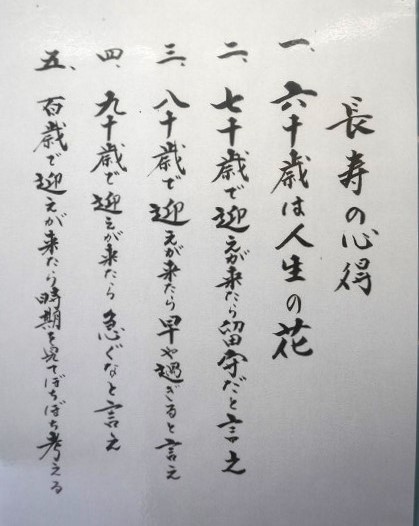 長寿の心得
一、六十歳は人生の花
二、七十歳で迎えが来たら留守だと言え
三、八十歳で迎えが来たら早や過ぎると言え
四、九十歳で迎えが来たら急ぐなと言え
五、百歳で迎えが来たら時期を見てぼちぼち考える